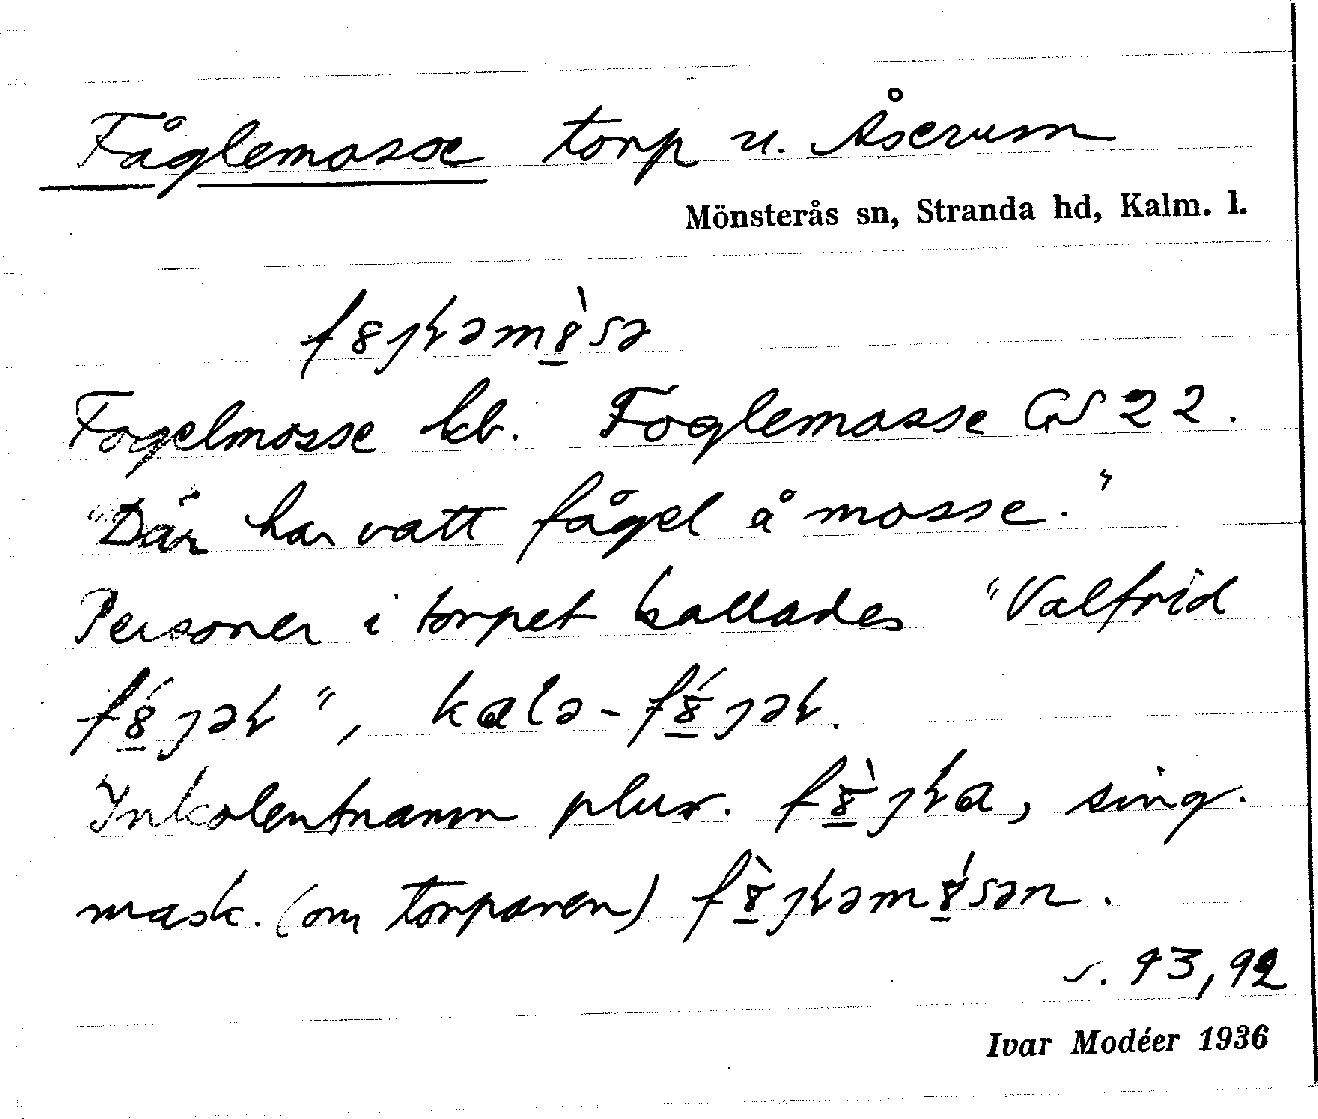 Fåglemosse torp u. Åserum
Mönsterås sn, Stranda hd, Kalm. l.
Fogelmosse kb. Foglemosse GS 22.
"Där har vatt fågel å mosse."
Personer i torpet kallades "Valfrid
f8jəɫ", kalə-f8jəɫ.
Inkolentnamn plur. f8̀jɫa, sing.
mask. (om torparen) f8̀jɫəm8́sən.
s. 93, 92
Ivar Modéer 1936